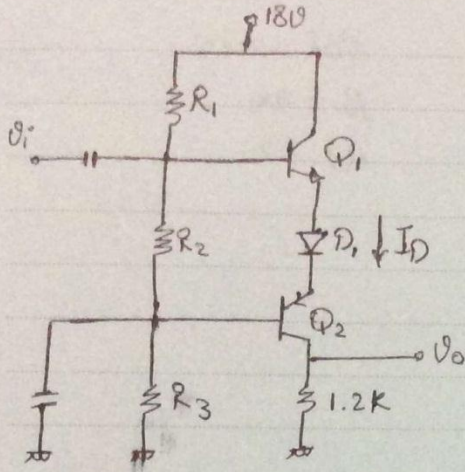 18V
R1
Vi
Q1
R2
D1 ↓ ID
Q2
Vo
R3
1.2K